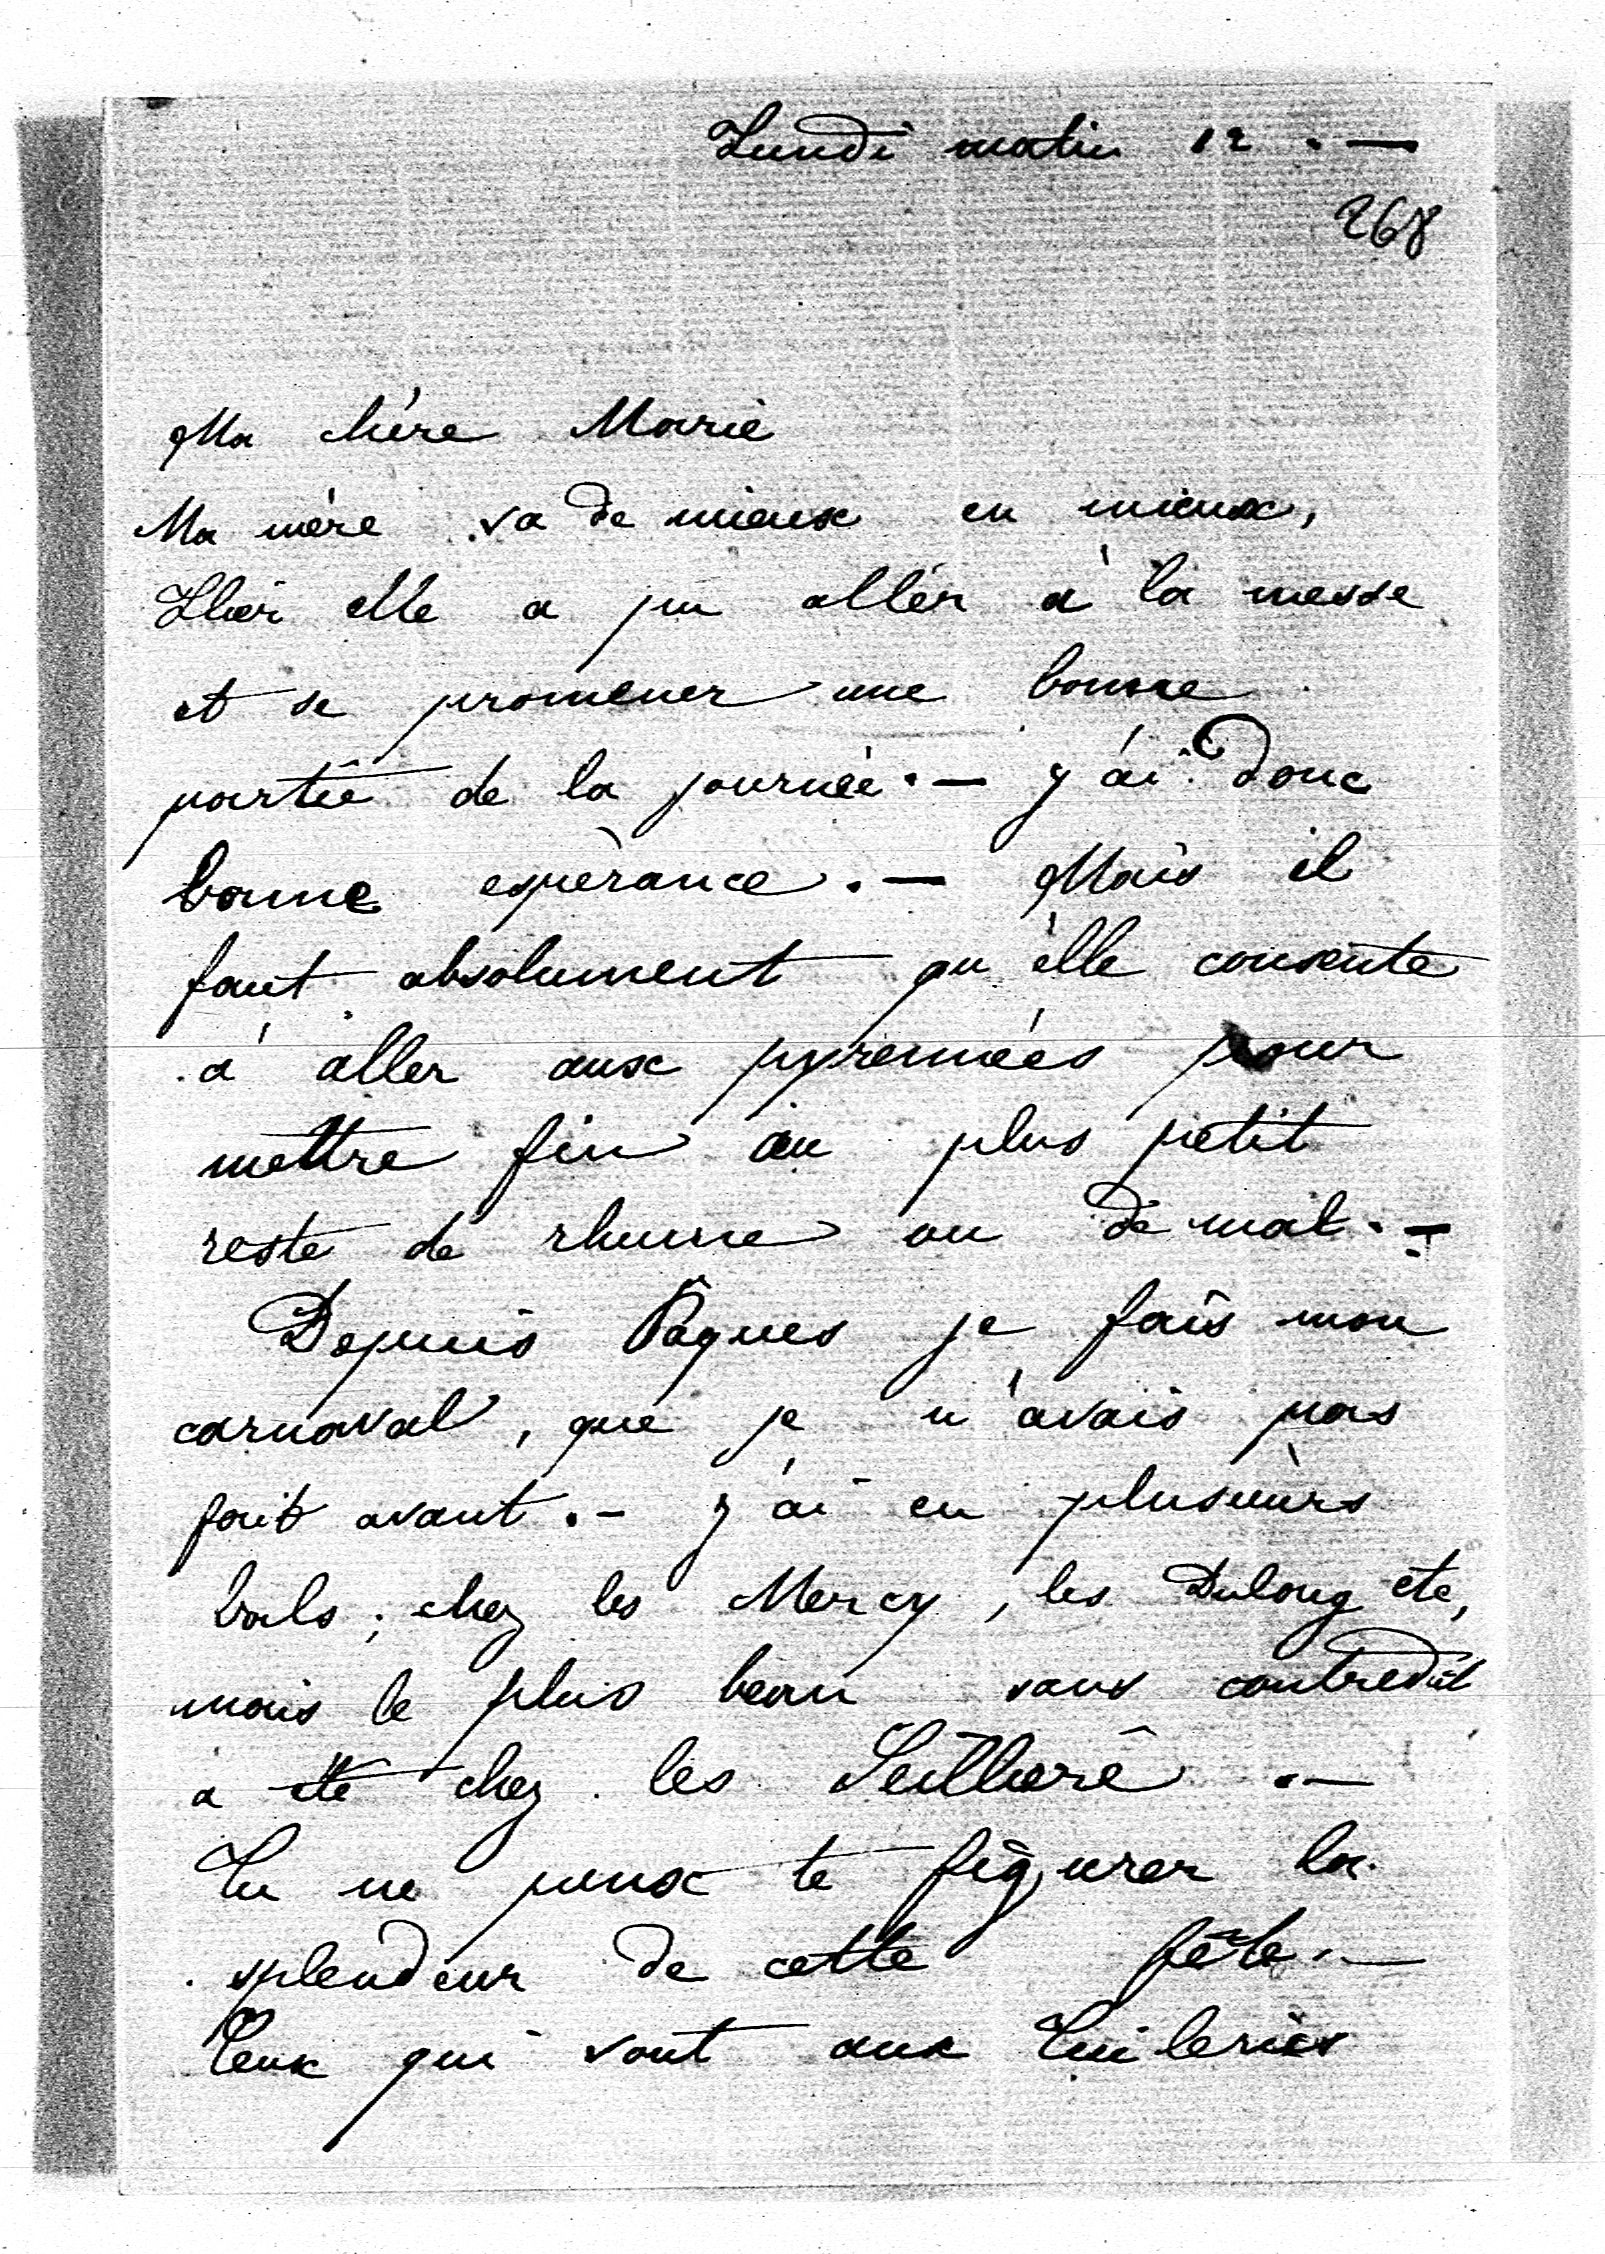 Lundi matin 12. —
268
Ma chère Marie
Ma mère va de mieux en mieux,
Hier elle a pu aller à la messe
et se promener une bonne
partie de la journée. — J'ai donc
bonne espèrance. — Mais il
faut absolument qu'elle consente
à aller aux pyrennées pour
mettre fin au plus petit
reste de rhume ou de mal. —
Depuis Pâques je fais mon
carnaval, que je n'avais pas
fait avant. — J'ai eu plusieurs
bals; chez les Mercy, les Dulong etc,
mais le plus beau sans contredit
a été chez les Seillière. —
Tu ne peux te figurer la
splendeur de cette fête. —
Ceux qui vont aux Tuileries